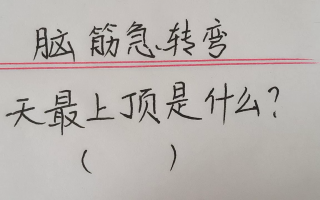 脑筋急转弯
天最上顶是什么?
(  )